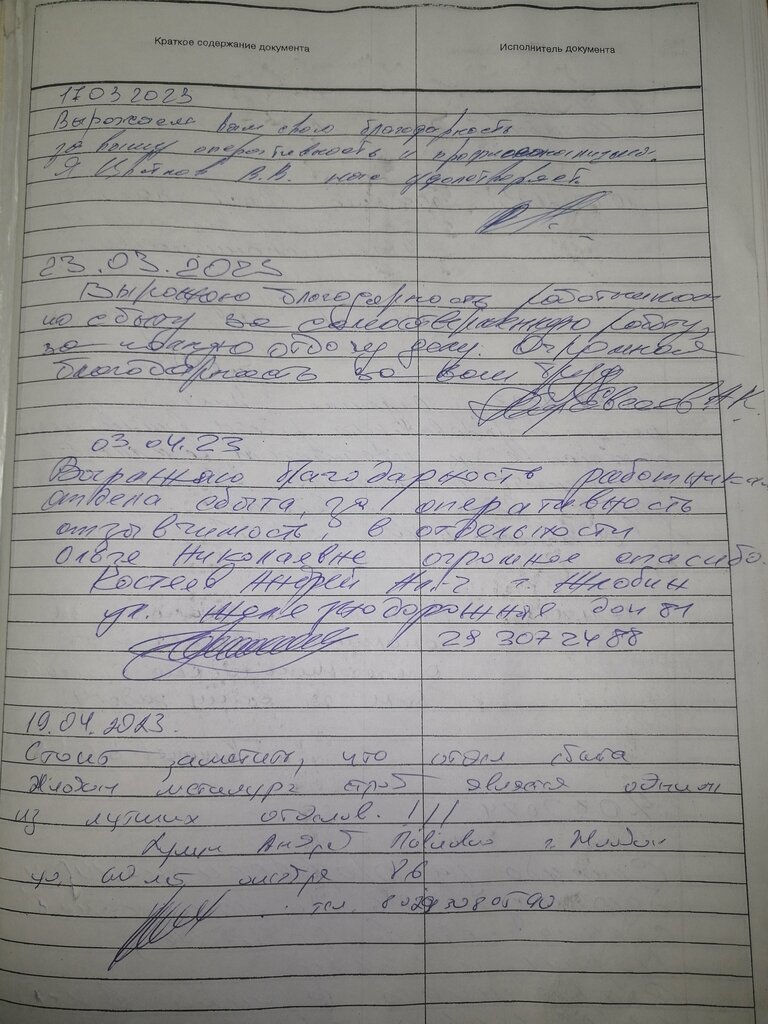 Краткое содержание документа
Исполнитель документа
17 03 2023
Выражаем вам свою благодарность
за вашу оперативность и
Я Цветков В.В.
23.03.2023
Выражаю благодарность работникам
по сбыту за работу,
за отдачу делу. Огромная
благодарность за ваш труд
А.К.
03.04.23
Выражаю благодарность работникам
отдела сбыта, за оперативность
отзывчивость, в отдельности
Ольге Николаевне огромное спасибо.
Костеев Андрей г. Жлобин
ул. Железнодорожная дом 81
29 307 24 88
19.04.2023.
Стоит заметить, что отдел сбыта
Жлобин является одним
из лутших отделов. !!!
Андрей Павлович г. Жлобин
ул. 60 лет октября 86
тел 8 029 308 05 90